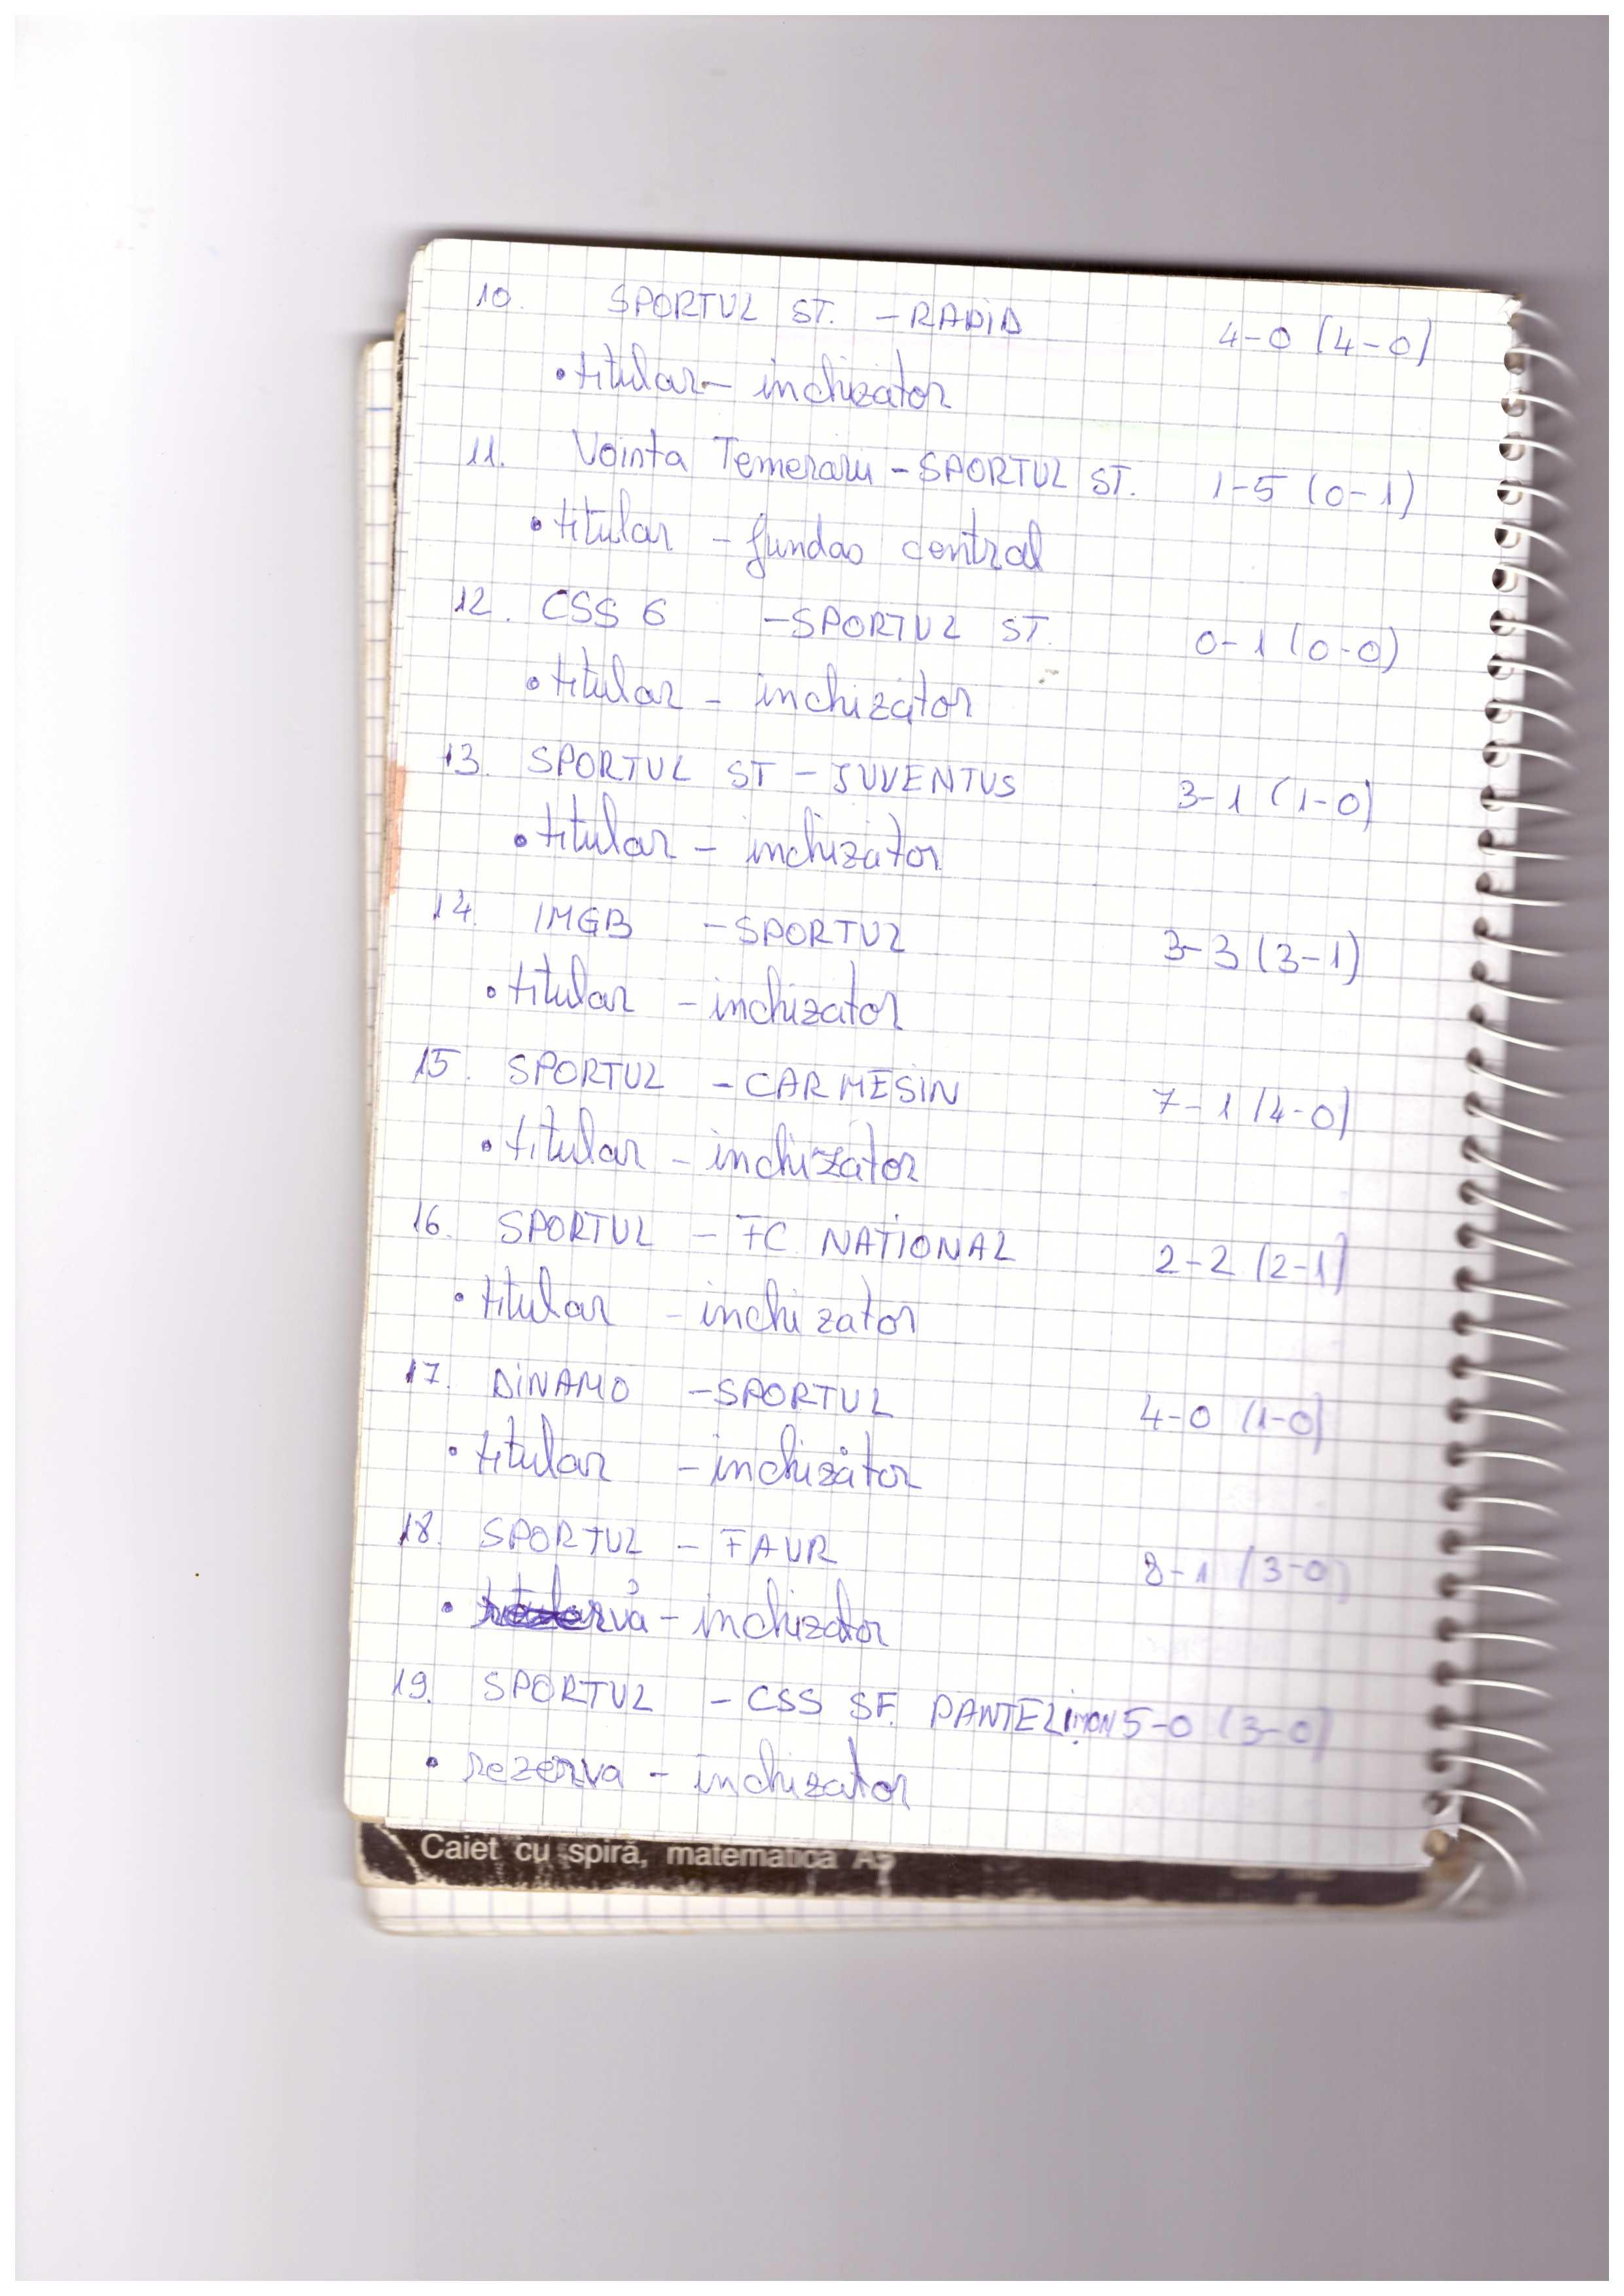 10. SPORTUL ST. - RAPID 4-0 (4-0)
• titular - inchizator
11. Vointa Temerarii - SPORTUL ST. 1-5 (0-1)
• titular - fundas central
12. CSS 6 - SPORTUL ST. 0-1 (0-0)
• titular - inchizator
13. SPORTUL ST - JUVENTUS 3-1 (1-0)
• titular - inchizator
14. IMGB - SPORTUL 3-3 (3-1)
• titular - inchizator
15. SPORTUL - CARMESIN 7-1 (4-0)
• titular - inchizator
16. SPORTUL - FC NATIONAL 2-2 (2-1)
• titular - inchizator
17. DINAMO - SPORTUL 4-0 (1-0)
• titular - inchizator
18. SPORTUL - FAUR 8-1 (3-0)
• - inchizator
19. SPORTUL - CSS SF. PANTELIMON 5-0 (3-0)
• rezerva - inchizator
Caiet cu spiră, matematică A5